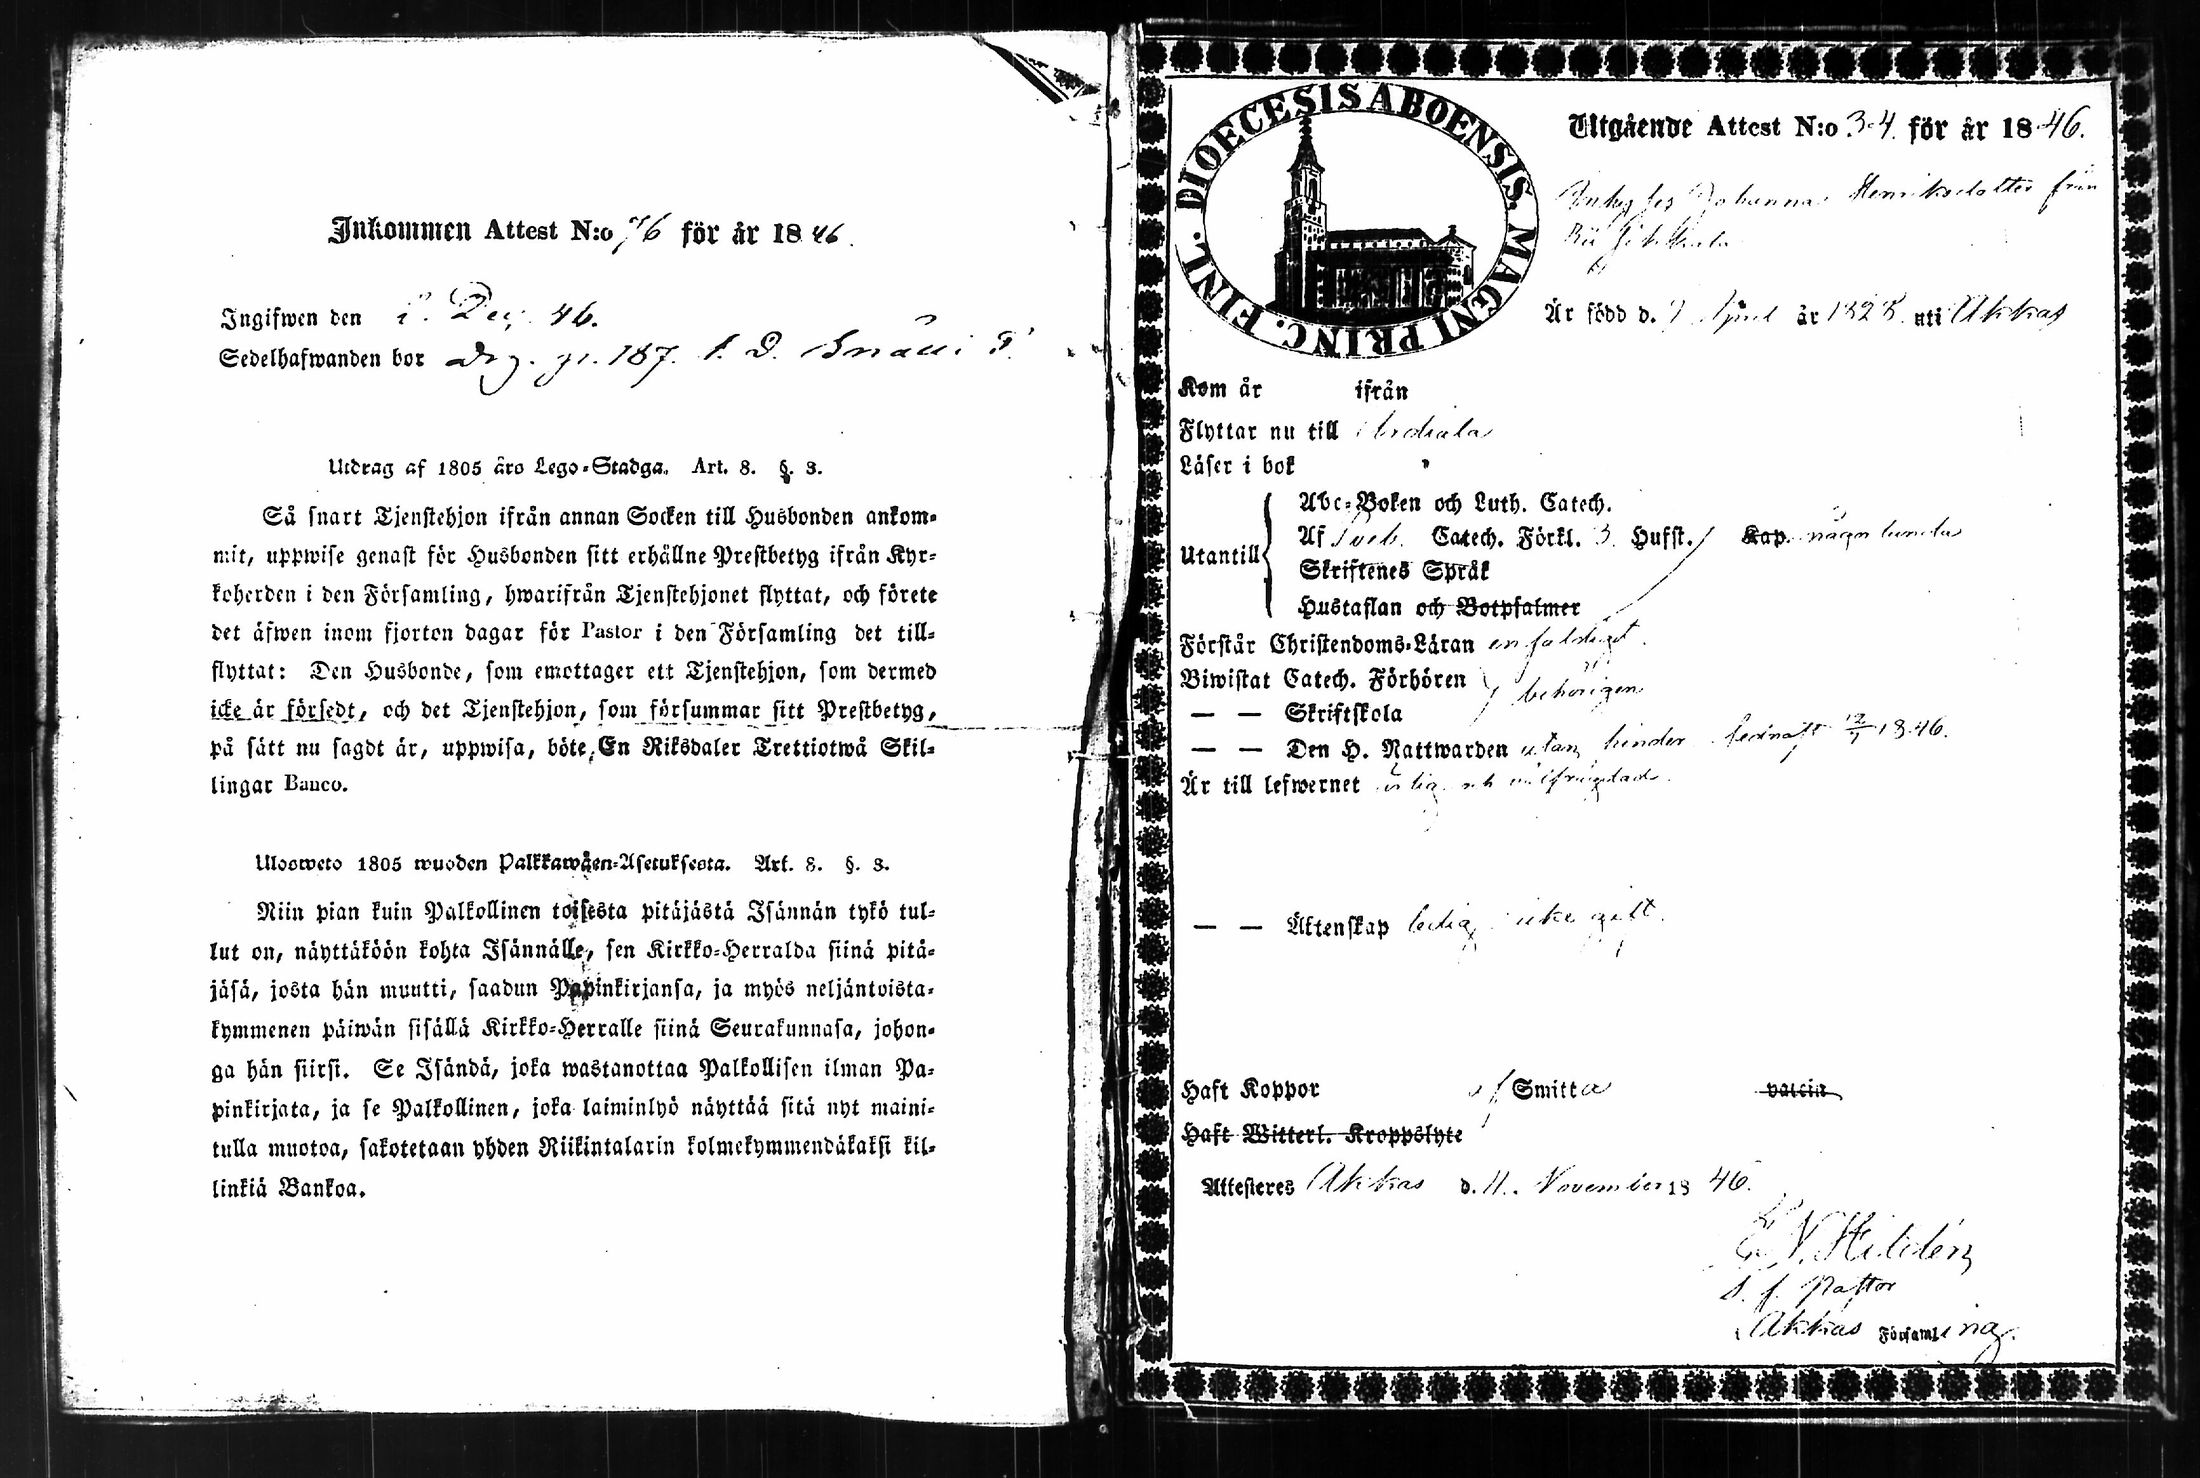 Inkommen Attest N:o 76 för år 1846.
Ingifwen den 2. Dec. 46.
Sedelhafwanden bor 187.
Utdrag af 1805 åro Lego-Stadga. Art. 8. §. 3.
Så snart Tjenstehjon ifrån annan Socken till Husbonden ankom-
mit, uppwise genast för Husbonden sitt erhållne Prestbetyg ifrån Kyr-
koherden i den Församling, hwarifrån Tjenstehjonet flyttat, och förete
det äfwen inom fjorton dagar för Pastor i den Församling det till-
flyttat: Den Husbonde, som emottager ett Tjenstehjon, som dermed
icke är försedt, och det Tjenstehjon, som försummar sitt Prestbetyg,
på sätt nu sagdt är, uppwisa, böte En Riksdaler Trettiotwå Skil-
lingar Banco.
Ulosweto 1805 wuoden Palkkawäen-Asetuksesta. Art. 8. §. 3.
Niin pian kuin Palkollinen toisesta pitäjästä Isännän tykö tul-
lut on, näyttäköön kohta Isännälle, sen Kirkko-Herralda siinä pitä-
jäsä, josta hän muutti, saadun Papinkirjansa, ja myös neljäntoista-
kymmenen päiwän sisällä Kirkko-Herralle siinä Seurakunnasa, johon-
ga hän siirsi. Se Isändä, joka wastanottaa Palkollisen ilman Pa-
pinkirjata, ja se Palkollinen, joka laiminlyö näyttää sitä nyt maini-
tulla muotoa, sakotetaan yhden Riikintalarin kolmekymmendäkaksi kil-
linkiä Bankoa.
DIOECESIS ABOENSIS. MAGNI PRINC. FINL.
Utgående Attest N:o 34. för år 1846.
Johanna Henriksdotter från
Är född d. 9 April år 1828. uti Akkas
Kom år ifrån
Flyttar nu till Urdiala
Läser i bok
Abc-Boken och Luth. Catech.
Utantill Af Sveb. Catech. Förkl. 3. Hufst. Kap. någorlunda
Skriftenes Språk
Hustaflan och Botpsalmer
Förstår Christendoms-Läran enfaldigt.
Biwistat Catech. Förhören
— — Skriftskola behörigen
— — Den H. Nattwarden utan hinder sednast 12/7 1846.
Är till lefwernet ärlig och välfrägdad.
— — Äktenskap ledig icke gift.
Haft Koppor af Smitta vaccin
Haft Witterl. Kroppslyte
Attesteres Akkas d. 11. November 1846.
E. N. Hildén
v. f. Pastor
Akkas Församling.